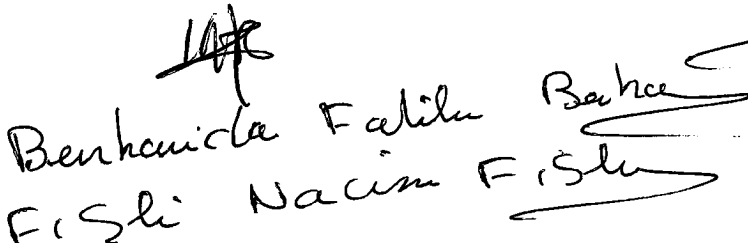 Benhamida Fatiha Baha
Fisli Nacim Fisli